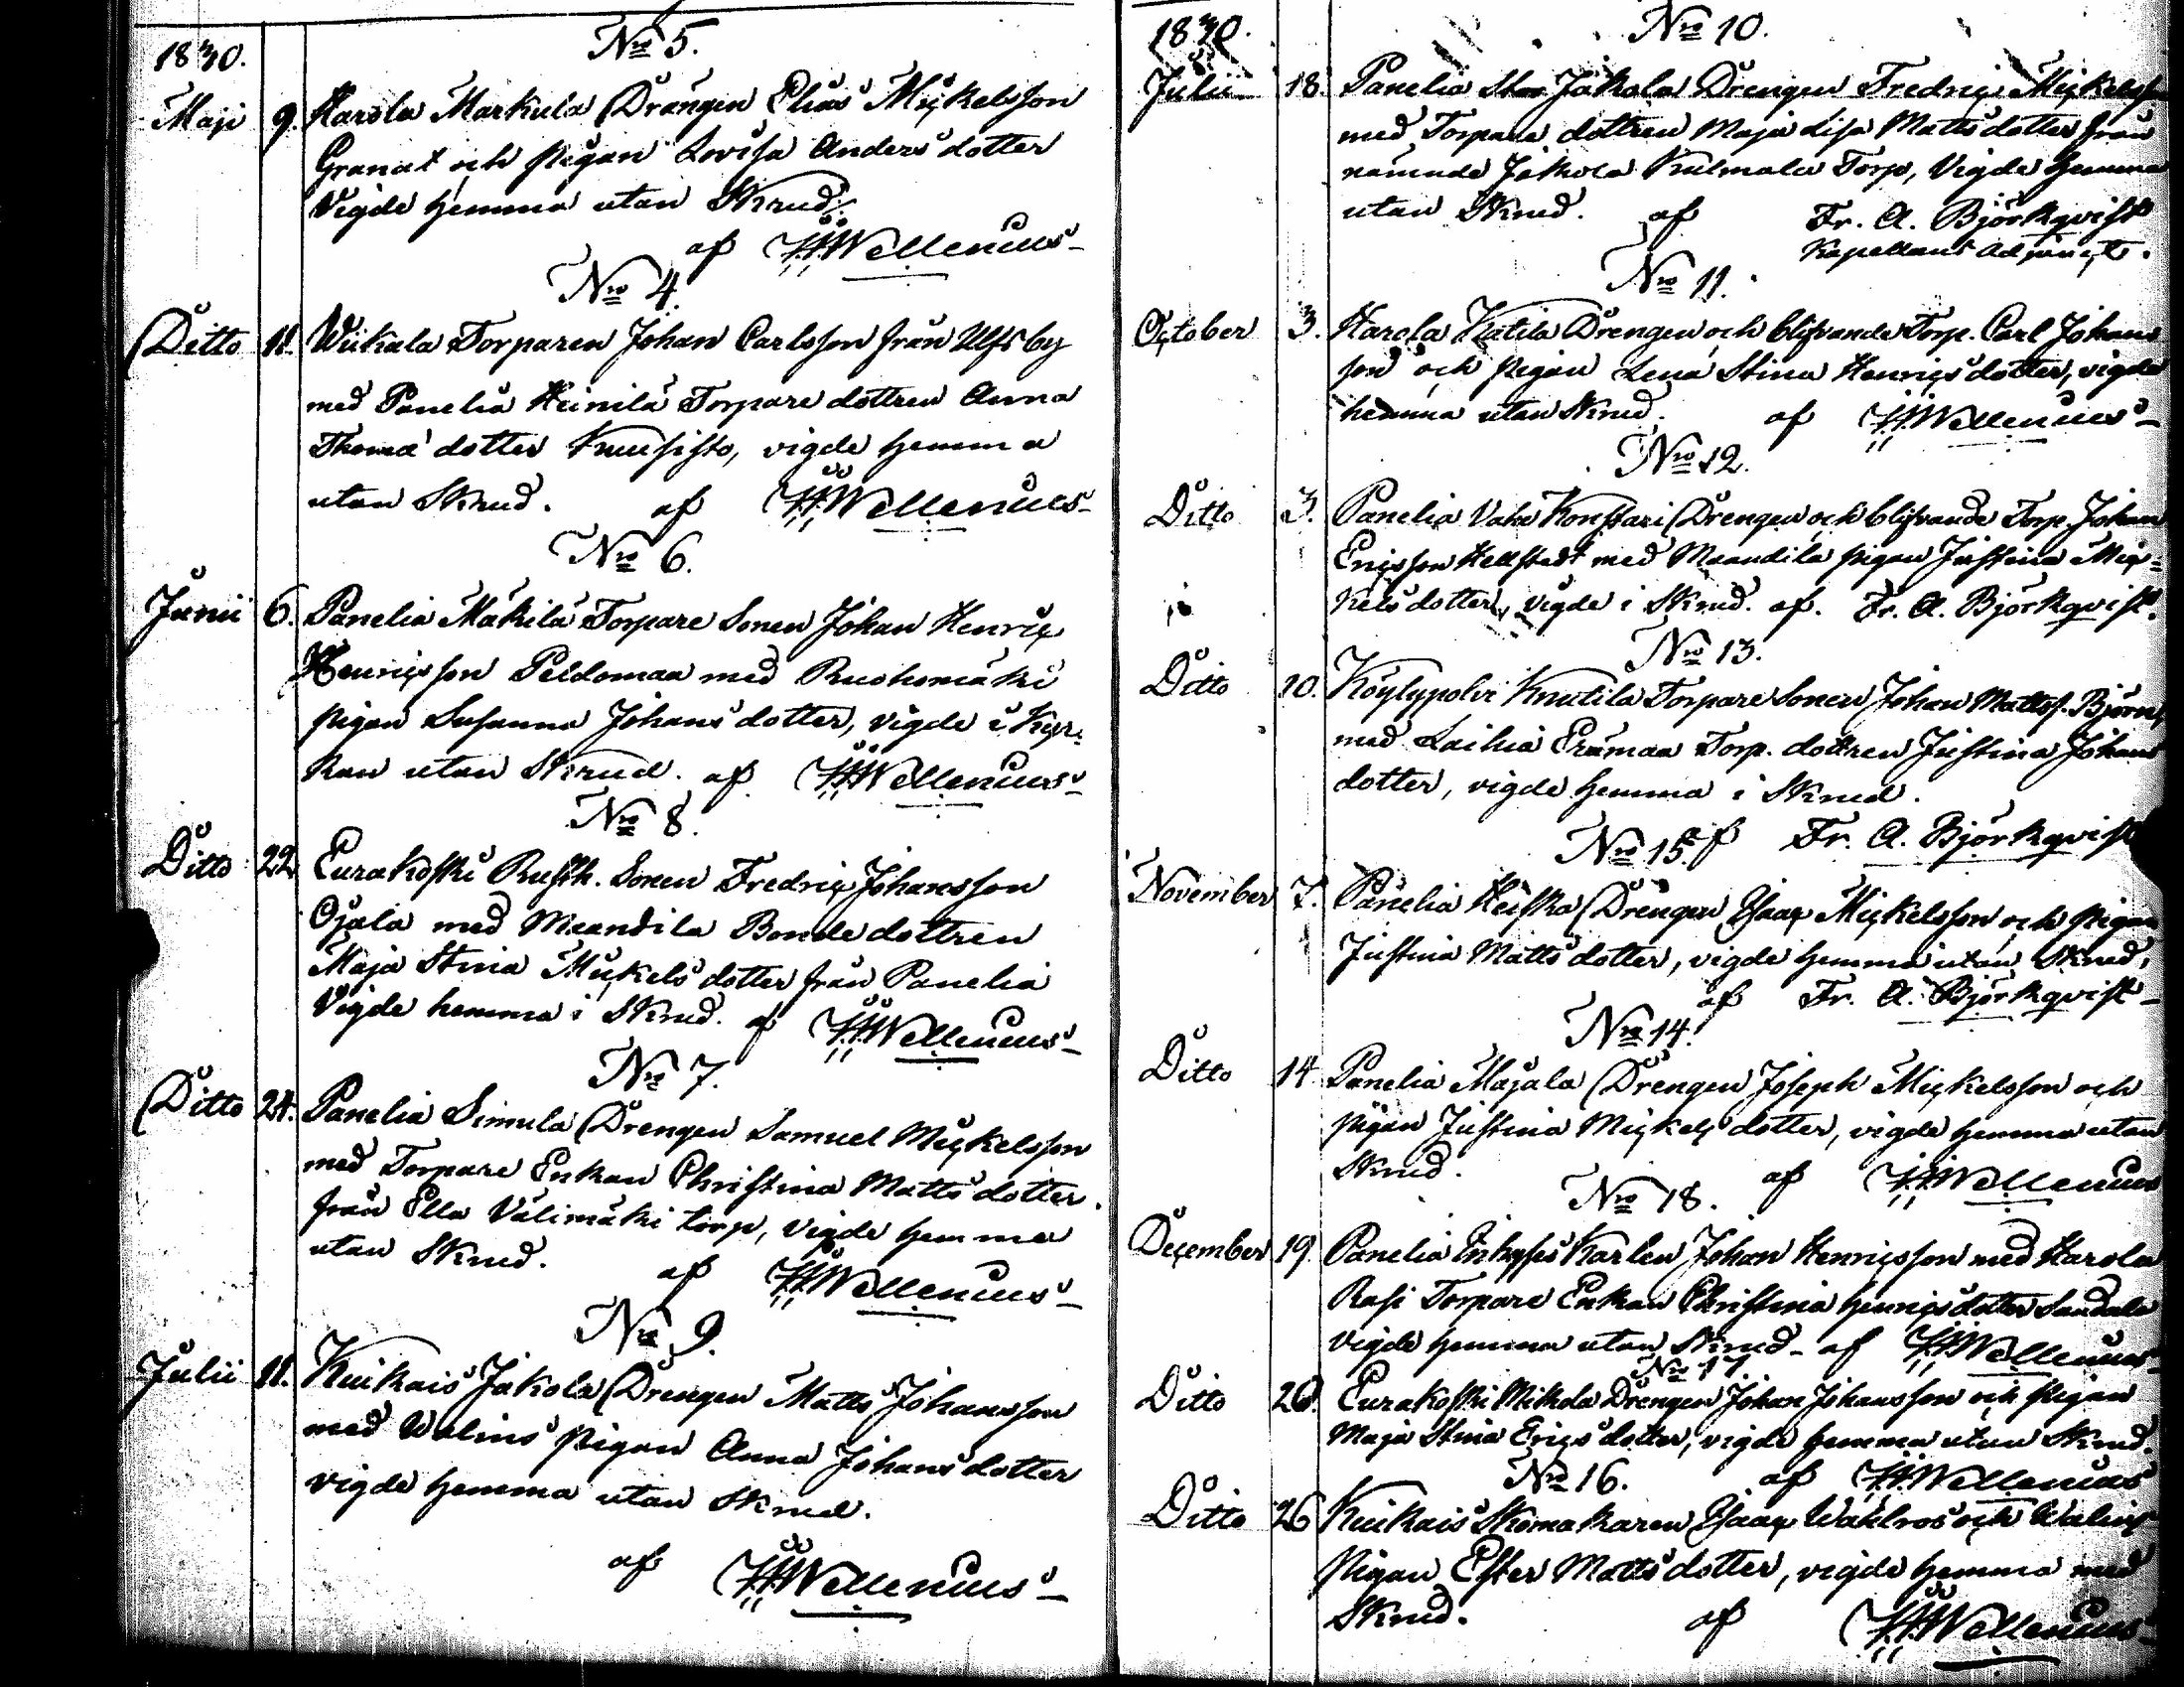 1830.
No 5.
Maji 9. Harola Markula Drängen Elias Mickelsson
Granat och pigan Lovisa Anders dotter
Vigde hemma utan Skrud.
af HWellenius
No 4.
Ditto 11. Torparen Johan Carlsson från Ulfsby
med Panelia Heinilä Torpare dottren Anna
Thomæ dotter Kuusisto, vigde hemma
utan Skrud. af HWellenius
No 6.
Junii 6. Panelia Mäkilä Torpare Sonen Johan Henric
Henricsson Peldomaa med Ruohomäki
pigan Susanna Johans dotter, vigde i Kyr-
kan utan Skrud. af HWellenius
No 8.
Ditto 22 Eurakoski Rusth. Sonen Fredric Johansson
Ojala med Maandila Bonde dottren
Maja Stina Mickels dotter från Panelia
Vigde hemma i Skrud. af HWellenius
No 7.
Ditto 24. Panelia Simula Drengen Samuel Mickelsson
med Torpare Enkan Christina Matts dotter
från Ella Välimäki torp, vigde hemma
utan Skrud. af HWellenius
No 9.
Julii 11. Kiukais Jakola Drengen Matts Johansson
med Walins pigan Anna Johans dotter
vigde hemma utan Skrud.
af HWellenius
1830.
No 10.
Julii 18. Panelia Stor Jakola Drengen Fredric Mickelsson
med Torpare dottren Maja Lisa Matts dotter från
nämnde Jakola Kulmala Torp, Vigde hemma
utan Skrud. af Fr. A. Björkqvist
Kapellans Adjunct.
No 11.
October 3. Harola Katila Drengen och blifvande Torp. Carl Johans
son och pigan Lena Stina Henrics dotter, vigde
hemma utan Skrud. af HWellenius
No 12.
Ditto 3. Panelia Vaha Konssari Drengen och blifvande Torp. Johan
Ericsson Hellstedt med Maandila pigan Justina Mic-
kels dotter, vigde i Skrud. af. Fr. A. Björkqvist.
No 13.
Ditto 10. Köylypolvi Knutila Torpare Sonen Johan Mattss. Björn
med Laihia Erämaa Torp. dottren Justina Johans
dotter, vigde hemma i Skrud.
af Fr. A. Björkqvist
No 15.
November 7. Panelia Heiska Drengen Isaac Mickelsson och pigan
Justina Matts dotter, vigde hemma utan Skrud,
af Fr. A. Björkqvist
No 14.
Ditto 14 Panelia Majala Drengen Joseph Mickelsson och
pigan Justina Mickels dotter, vigde hemma utan
Skrud. af HWellenius
No 18.
December 19. Panelia Inhyses Karlen Johan Henricsson med Harola
Rasi Torpare Enkan Christina Henrics dotter Sandala
vigde hemma utan Skrud af HWellenius
No 17
Ditto 26. Eurakoski Mikola Drengen Johan Johansson och pigan
Maja Stina Erics dotter, vigde hemma utan Skrud.
No 16. af HWellenius
Ditto 26 Kiukais Skomakaren Isaac Wahlros och Walins
Pigan Ester Matts dotter, vigde hemma med
Skrud. af HWellenius